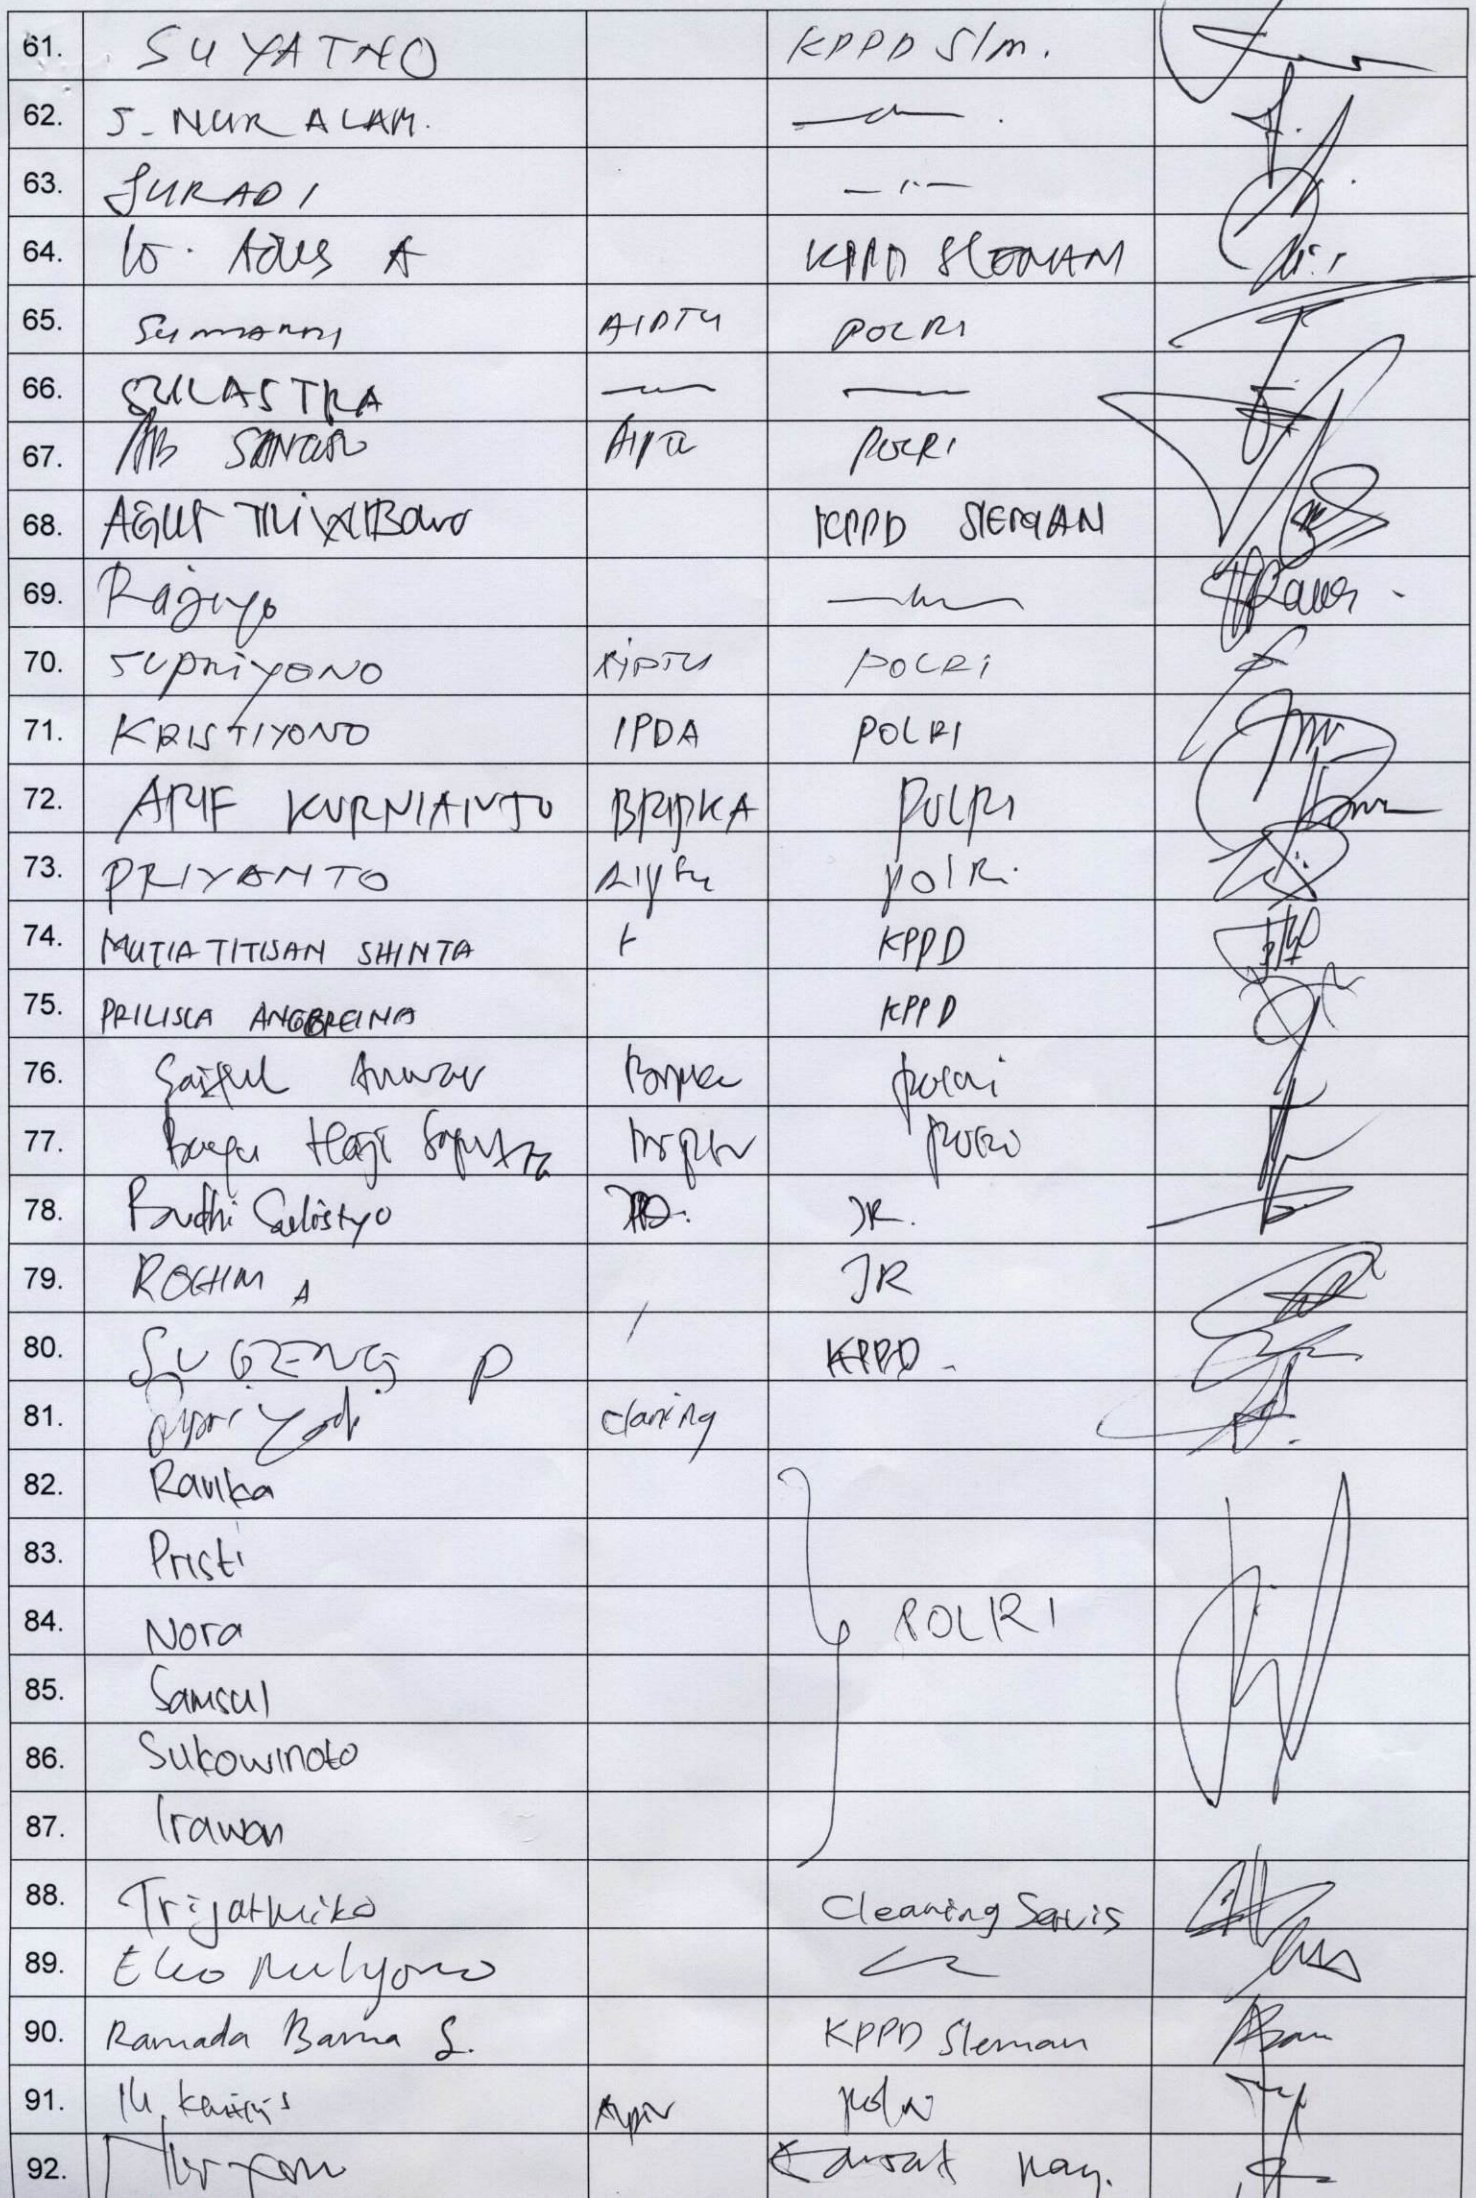 61. SUYATNO KPPD Slm.
62. S. NUR ALAM.
63. SURADI
64. AGUS A KPPD SLEMAN
65. AIPTU POLRI
66. SULASTRA
67. POLRI
68. AGUS KPPD SLEMAN
69.
70. SUPRIYONO AIPTU POLRI
71. KRISTIYONO IPDA POLRI
72. ARIF KURNIANTO BRIPKA POLRI
73. PRIYANTO Aiptu POLRI.
74. MUTIA TITISAN SHINTA KPPD
75. PRILISCA ANGGREINA KPPD
76. Saiful Anwar polri
77. Saputra
78. Budhi Sulistyo JR.
79. ROCHIM A JR
80. SUGENG P KPPD.
81. claning
82. Ravika
83. Pristi
84. Nora POLRI
85. Samsul
86. Sukowinoto
87. Irawan
88. Trijatmiko Cleaning Servis
89. Eko Mulyono
90. Ramada Barna S. KPPD Sleman
91.
92.